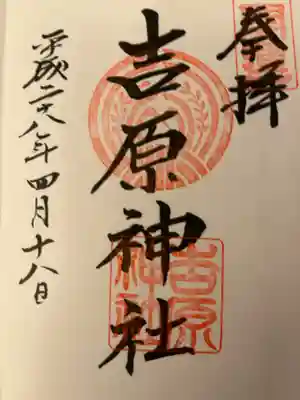 奉拝
吉原神社
平成二十八年四月十八日
吉原
神社